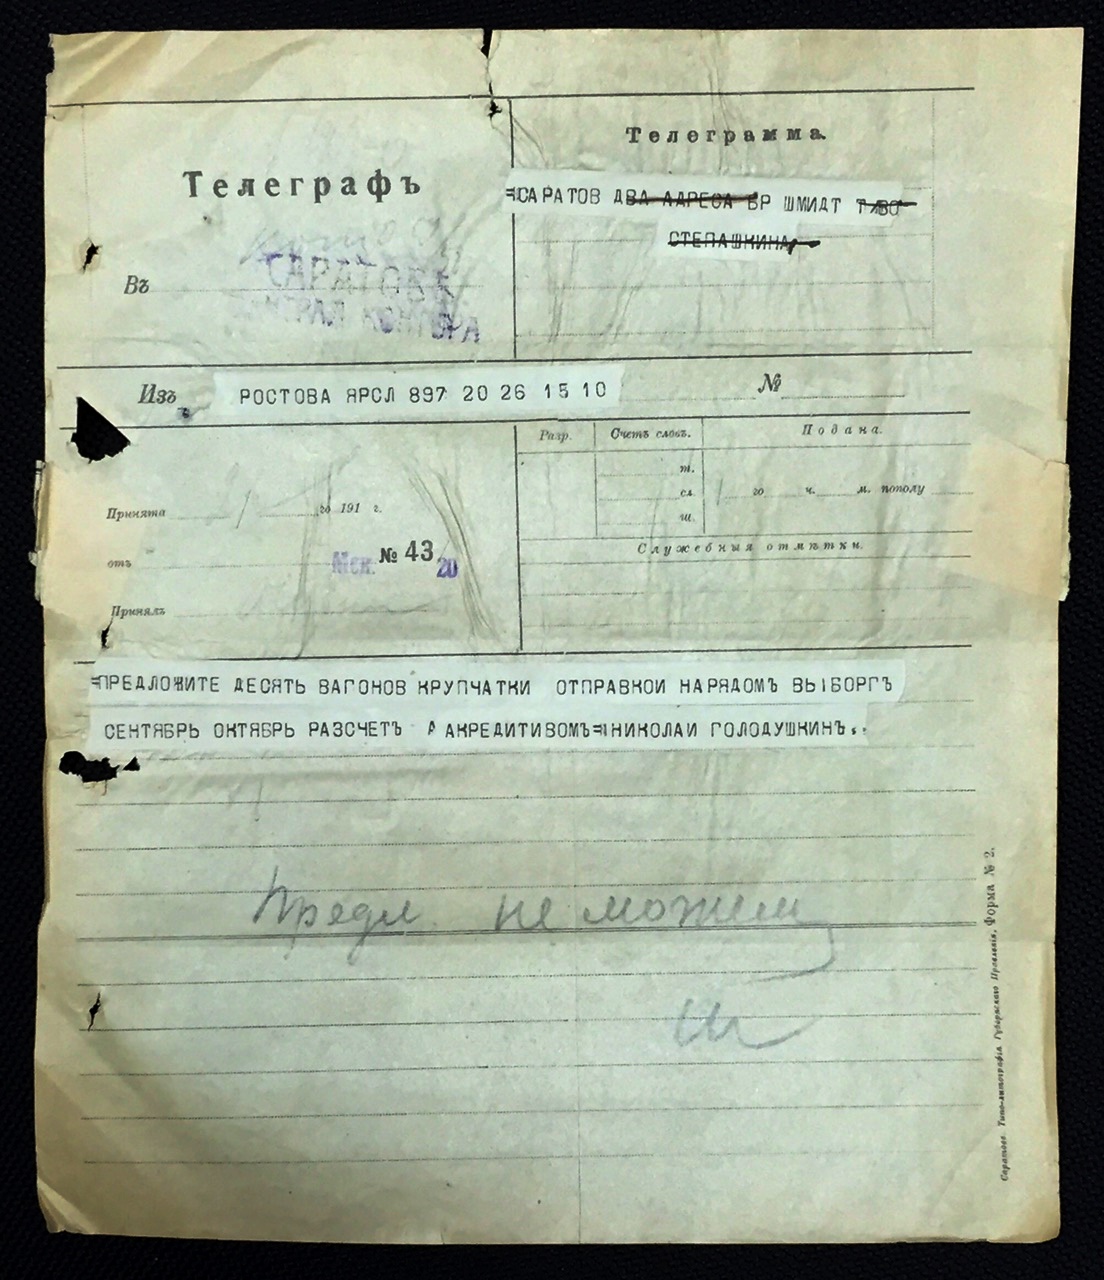 Телеграмма.
Телеграфъ
=САРАТОВ ДВА АДРЕСА БР ШМИДТ Т/ВО
СТЕПАШКИНА
Въ
САРАТОВЪ
КОНТОРА
Изъ РОСТОВА ЯРСЛ 897 20 26 15 10 №
Разр. Счетъ словъ. Подана.
т.
сл. го ч. м. пополу
ш.
Принята го 191 г.
Служебныя отмѣтки.
отъ Мск. № 43 20
Принялъ
=ПРЕДЛОЖИТЕ ДЕСЯТЬ ВАГОНОВ КРУПЧАТКИ ОТПРАВКОИ НАРЯДОМЪ ВЫБОРГЪ
СЕНТЯБРЬ ОКТЯБРЬ РАЗСЧЕТЪ А АКРЕДИТИВОМЪ=НИКОЛАИ ГОЛОДУШКИНЪ..
Предл не можем
Ш
Саратовъ. Типо-литографія Губернскаго Правленія. Форма № 2.